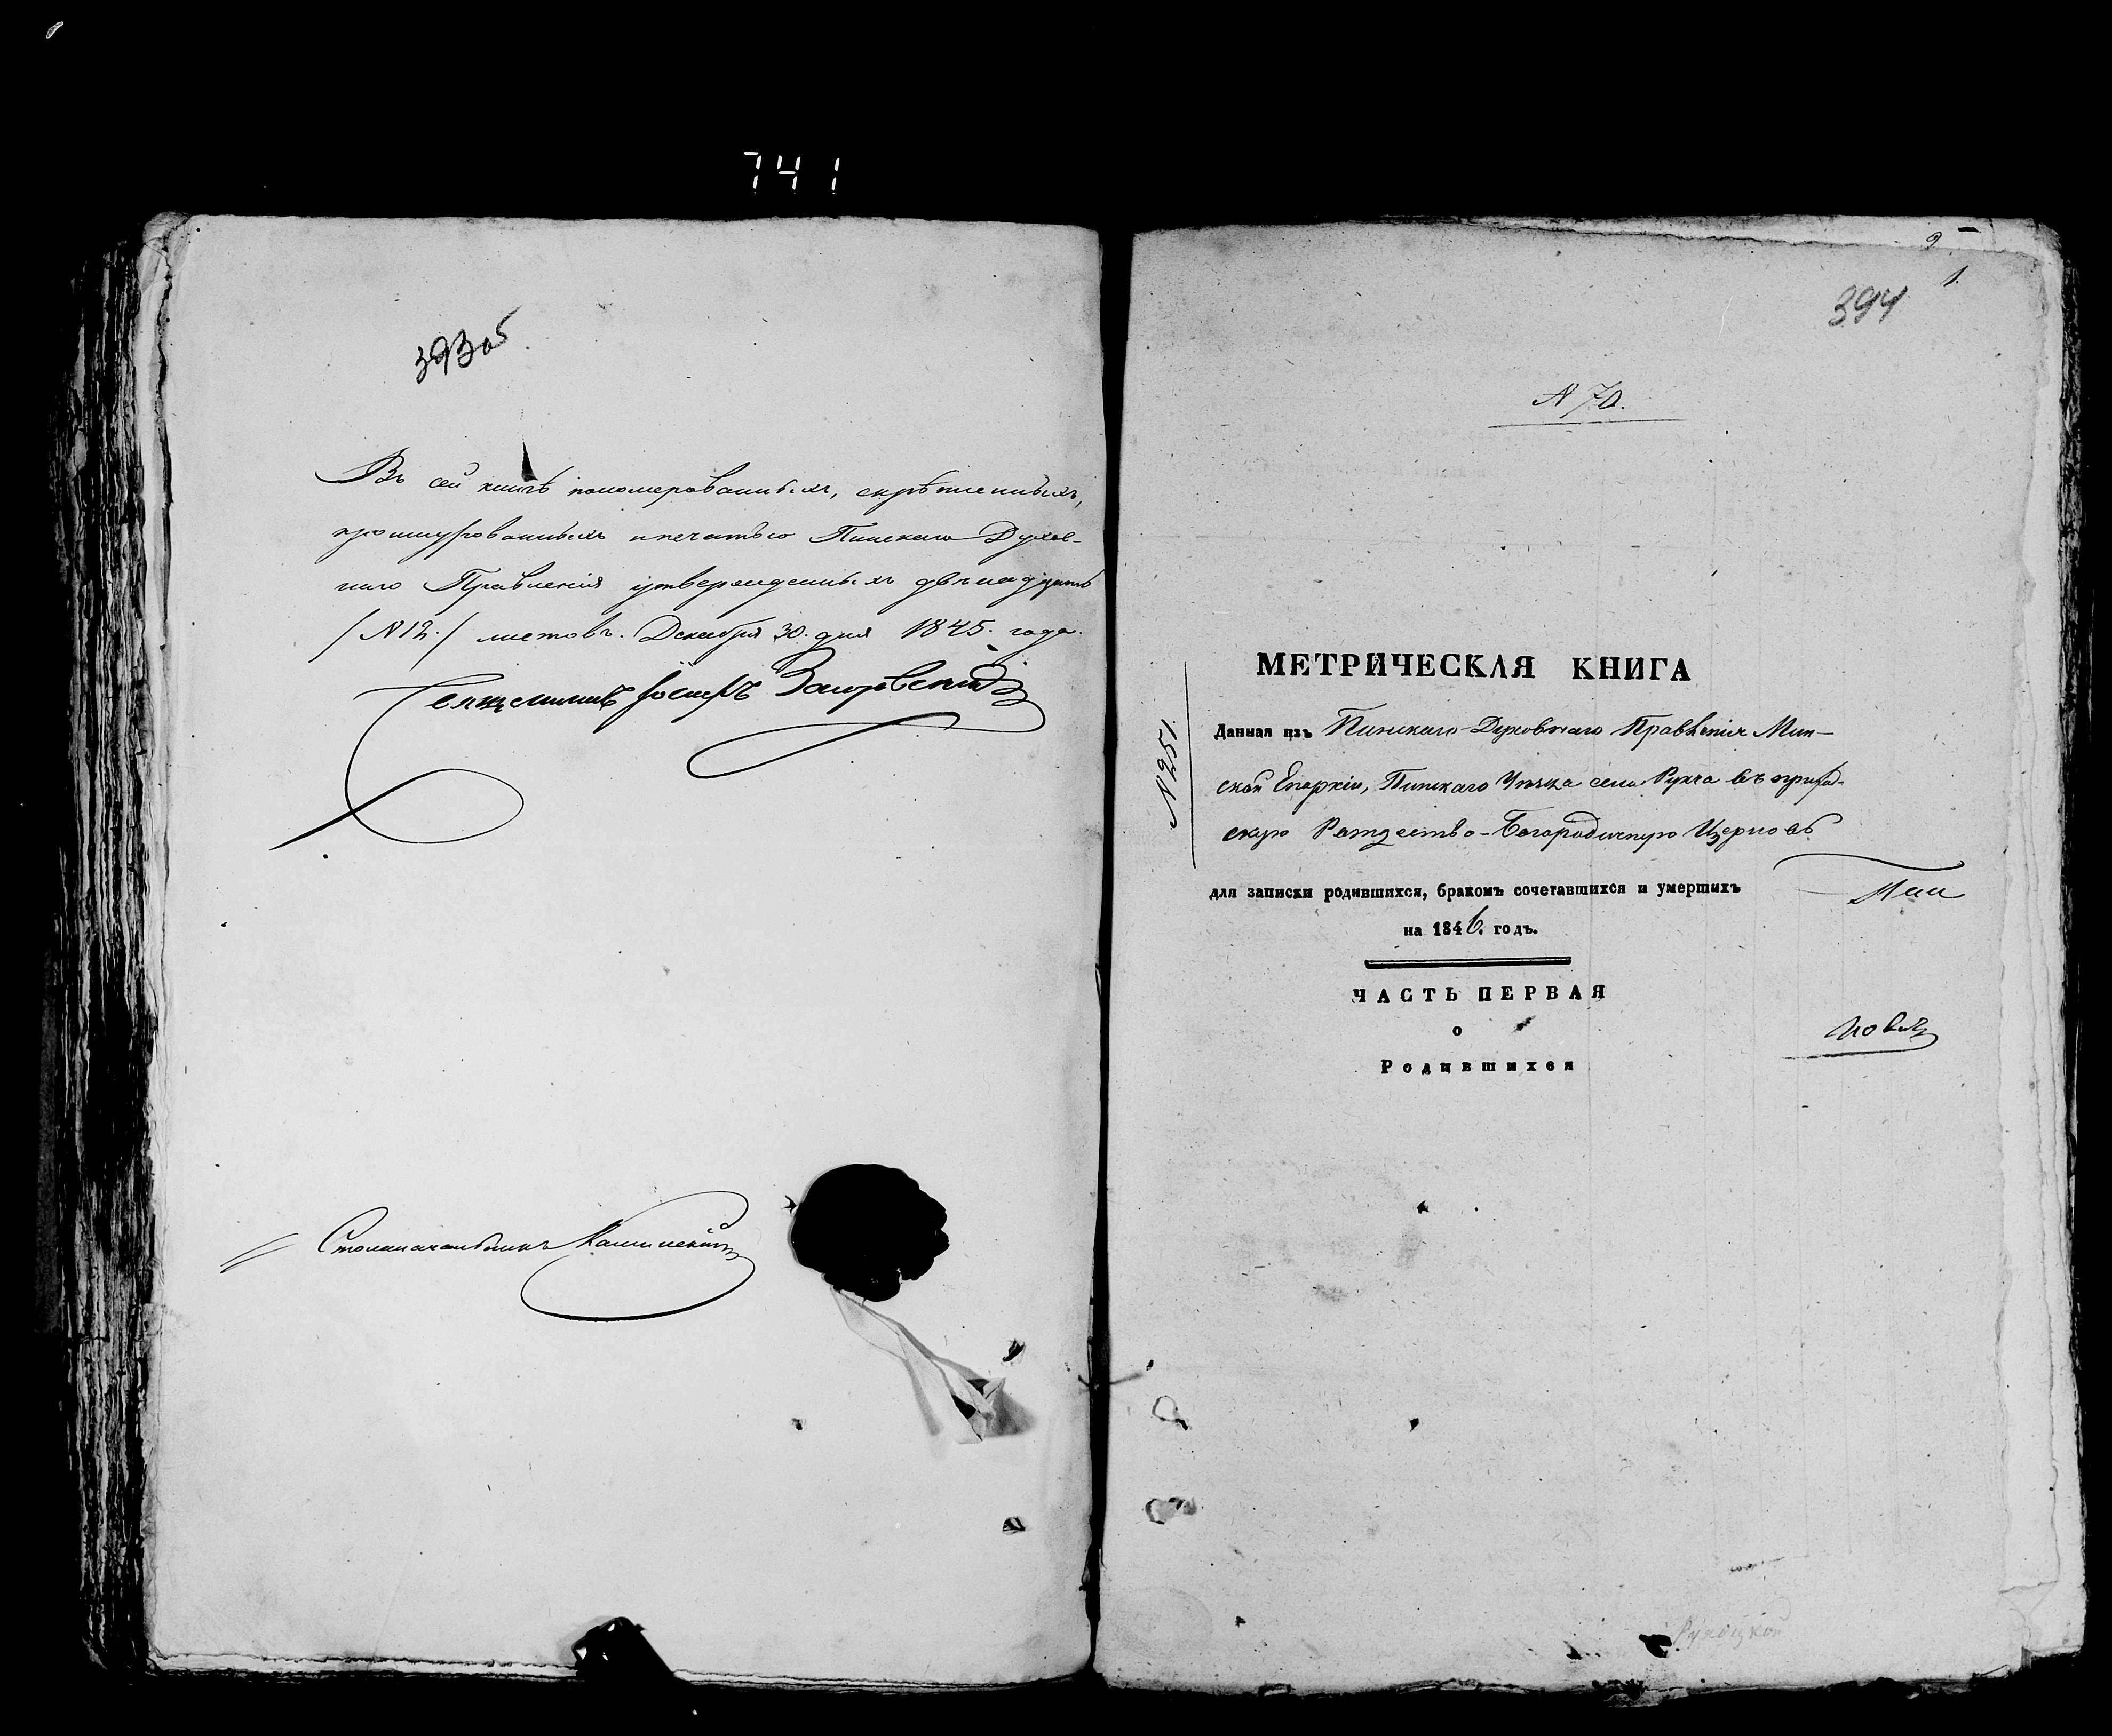 741
393 об
Въ сей книгѣ пономерованныхъ, скрѣпленныхъ,
прошнурованныхъ и печатью Пинскаго Духов-
наго Правленія утвержденныхъ двѣнадцать
/№12./ листовъ. Декабря 30. дня 1845. года.
Священникъ Іосифъ
Столоначальникъ
2
1.
394
№ 70.
№ 251.
МЕТРИЧЕСКАЯ КНИГА
Данная изъ Пинскаго Духовнаго Правленія Мин-
ской Епархіи, Пинскаго Уѣзда села Рухча въ приход-
скую Рождество-Богородичную Церковь
для записки родившихся, бракомъ сочетавшихся и умершихъ
на 1846. годъ.
Пин
ЧАСТЬ ПЕРВАЯ
о
Родившихся